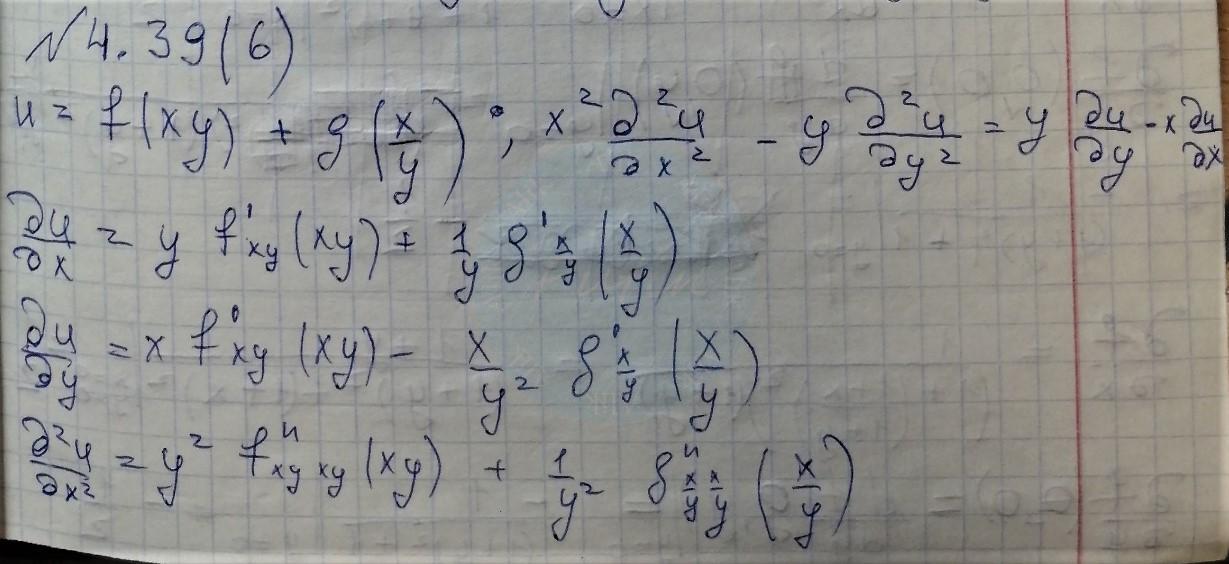 №4.39(6)
u = f(xy) + g(x/y); x² ∂²u/∂x² - y ∂²u/∂y² = y ∂u/∂y - x ∂u/∂x
∂u/∂x = y f'xy (xy) + 1/y g'x/y (x/y)
∂u/∂y = x f'xy (xy) - x/y² g'x/y (x/y)
∂²u/∂x² = y² f''xy xy (xy) + 1/y² g''x/y x/y (x/y)